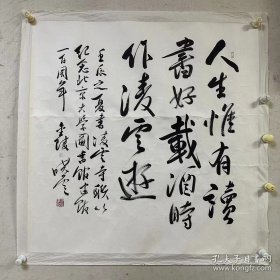 人生惟有讀
書好載酒時
作凌雲遊
壬辰之夏書凌雲寺联以
紀念北京大學圖書館建馆
一百周年